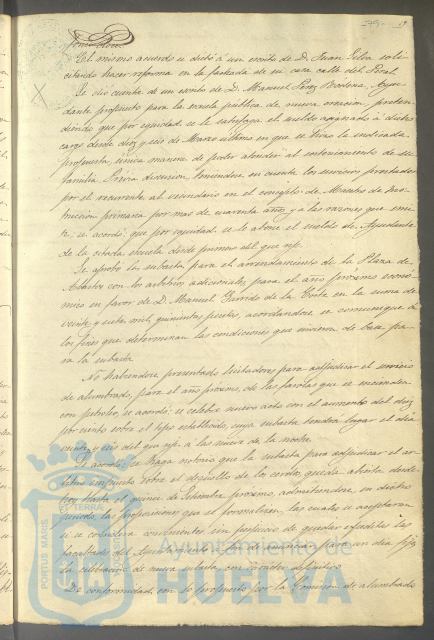 El mismo acuerdo se dictó á un escrito de D. Juan Silva soli-
citando hacer reforma en la fachada de su casa calle del Peral.
Se dió cuenta de un escrito de D. Manuel Perez Ayu-
dante propuesto para la escuela pública de nueva creacion, preten-
diendo que por equidad se le satisfaga el sueldo asignado á dicho
cargo desde diez y seis de Marzo último en que se hizo la indicada
propuesta, única manera de poder atender al sostenimiento de su
familia. Prévia discusion, teniendose en cuenta los servicios prestados
por el recurrente al vecindario en el concepto de Maestro de Ins-
truccion primaria por mas de cuarenta años, y á las razones que emi-
te, se acordó: que por equidad se le abone el sueldo de Ayudante
de la citada escuela desde primero del que rije.
Se aprobó la subasta para el arrendamiento de la Plaza de
Abastos con los arbitrios adicionales, para el año próximo econó-
mico en favor de D. Manuel Garrido de la Torre en la suma de
veinte y siete mil, quinientas pesetas, acordandose se comunique á
los fines que determinan las condiciones que sirvieron de base pa-
ra la subasta.
No habiendose presentado licitadores para adjudicar el servicio
de alumbrado, para el año próximo, de las farolas que se encienden
con petróleo, se acordó: se celebre nuevo acto con el aumento del diez
por ciento sobre el tipo establecido, cuya subasta tendrá lugar el dia
veinte y seis del que rije á las nueve de la noche.
Se acordó: se haga notorio que la subasta para adjudicar el ar-
bitrio impuesto sobre el degüello de los cerdos, queda abierta desde
hoy hasta el quince de Setiembre próximo, admitiendose, en dicho
periodo, las proposiciones que se formalicen, las cuales se aceptarán
si se consideran convenientes, sin perjuicio de quedar espeditas las
facultades del Ayuntamiento para anunciar para un dia fijo
la celebracion de nueva subasta, con carácter definitivo.
De conformidad con lo propuesto por la Comision de alumbrado
PORTUS MARIS ET TERRAE
Ayuntamiento de
HUELVA